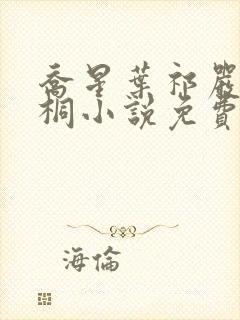 喬星葉祁嚴
桐小說免費
海倫